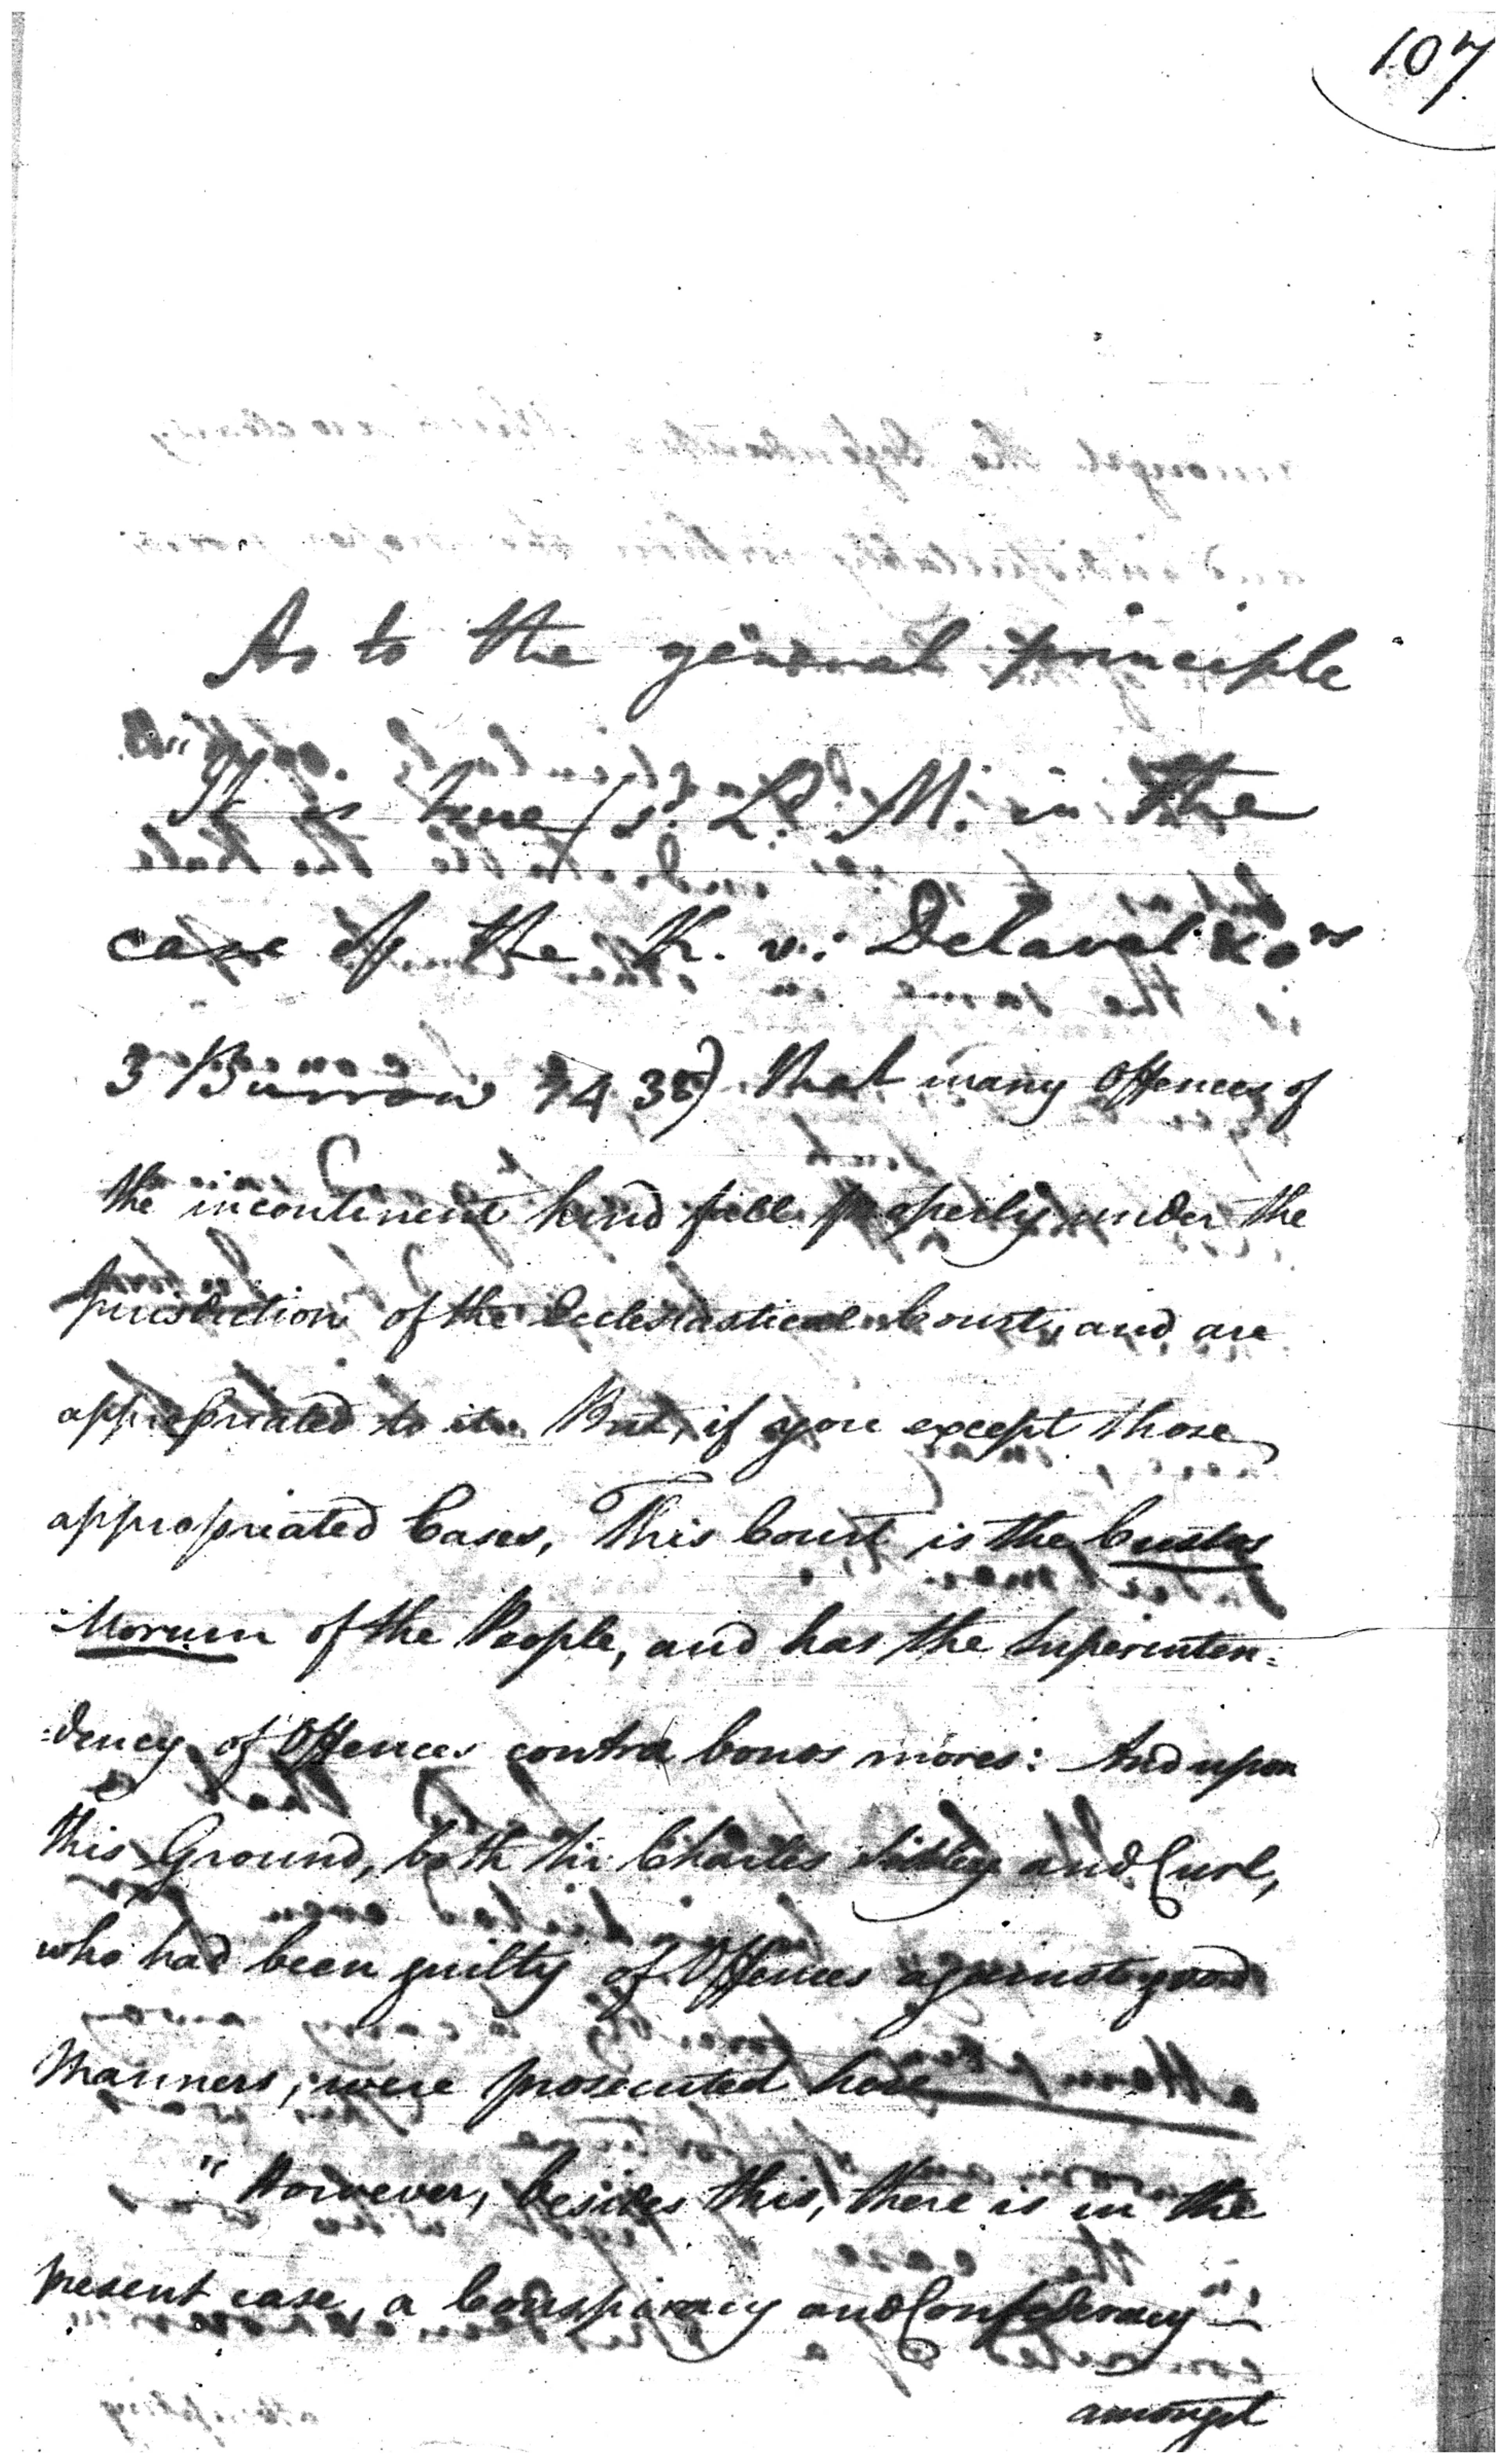 107
As to the general principle
It is true (sd. Ld. M. in the
case of the K. v: Delaval & ors
3 Burrow 1438) that many Offences of
the incontinent kind fall properly under the
Jurisdiction of the Ecclesiastical Court, and are
appropriated to it. But, if you except those
appropriated Cases, This Court is the Custos
Morum of the People, and has the Superinten=
=dency of Offences contra bonos mores: And upon
this Ground, both Sir Charles Sidley and Curl,
who had been guilty of Offences against good
Manners, were prosecuted here
" However, besides this, there is in the
present case, a Conspiracy and Confederacy
amongst